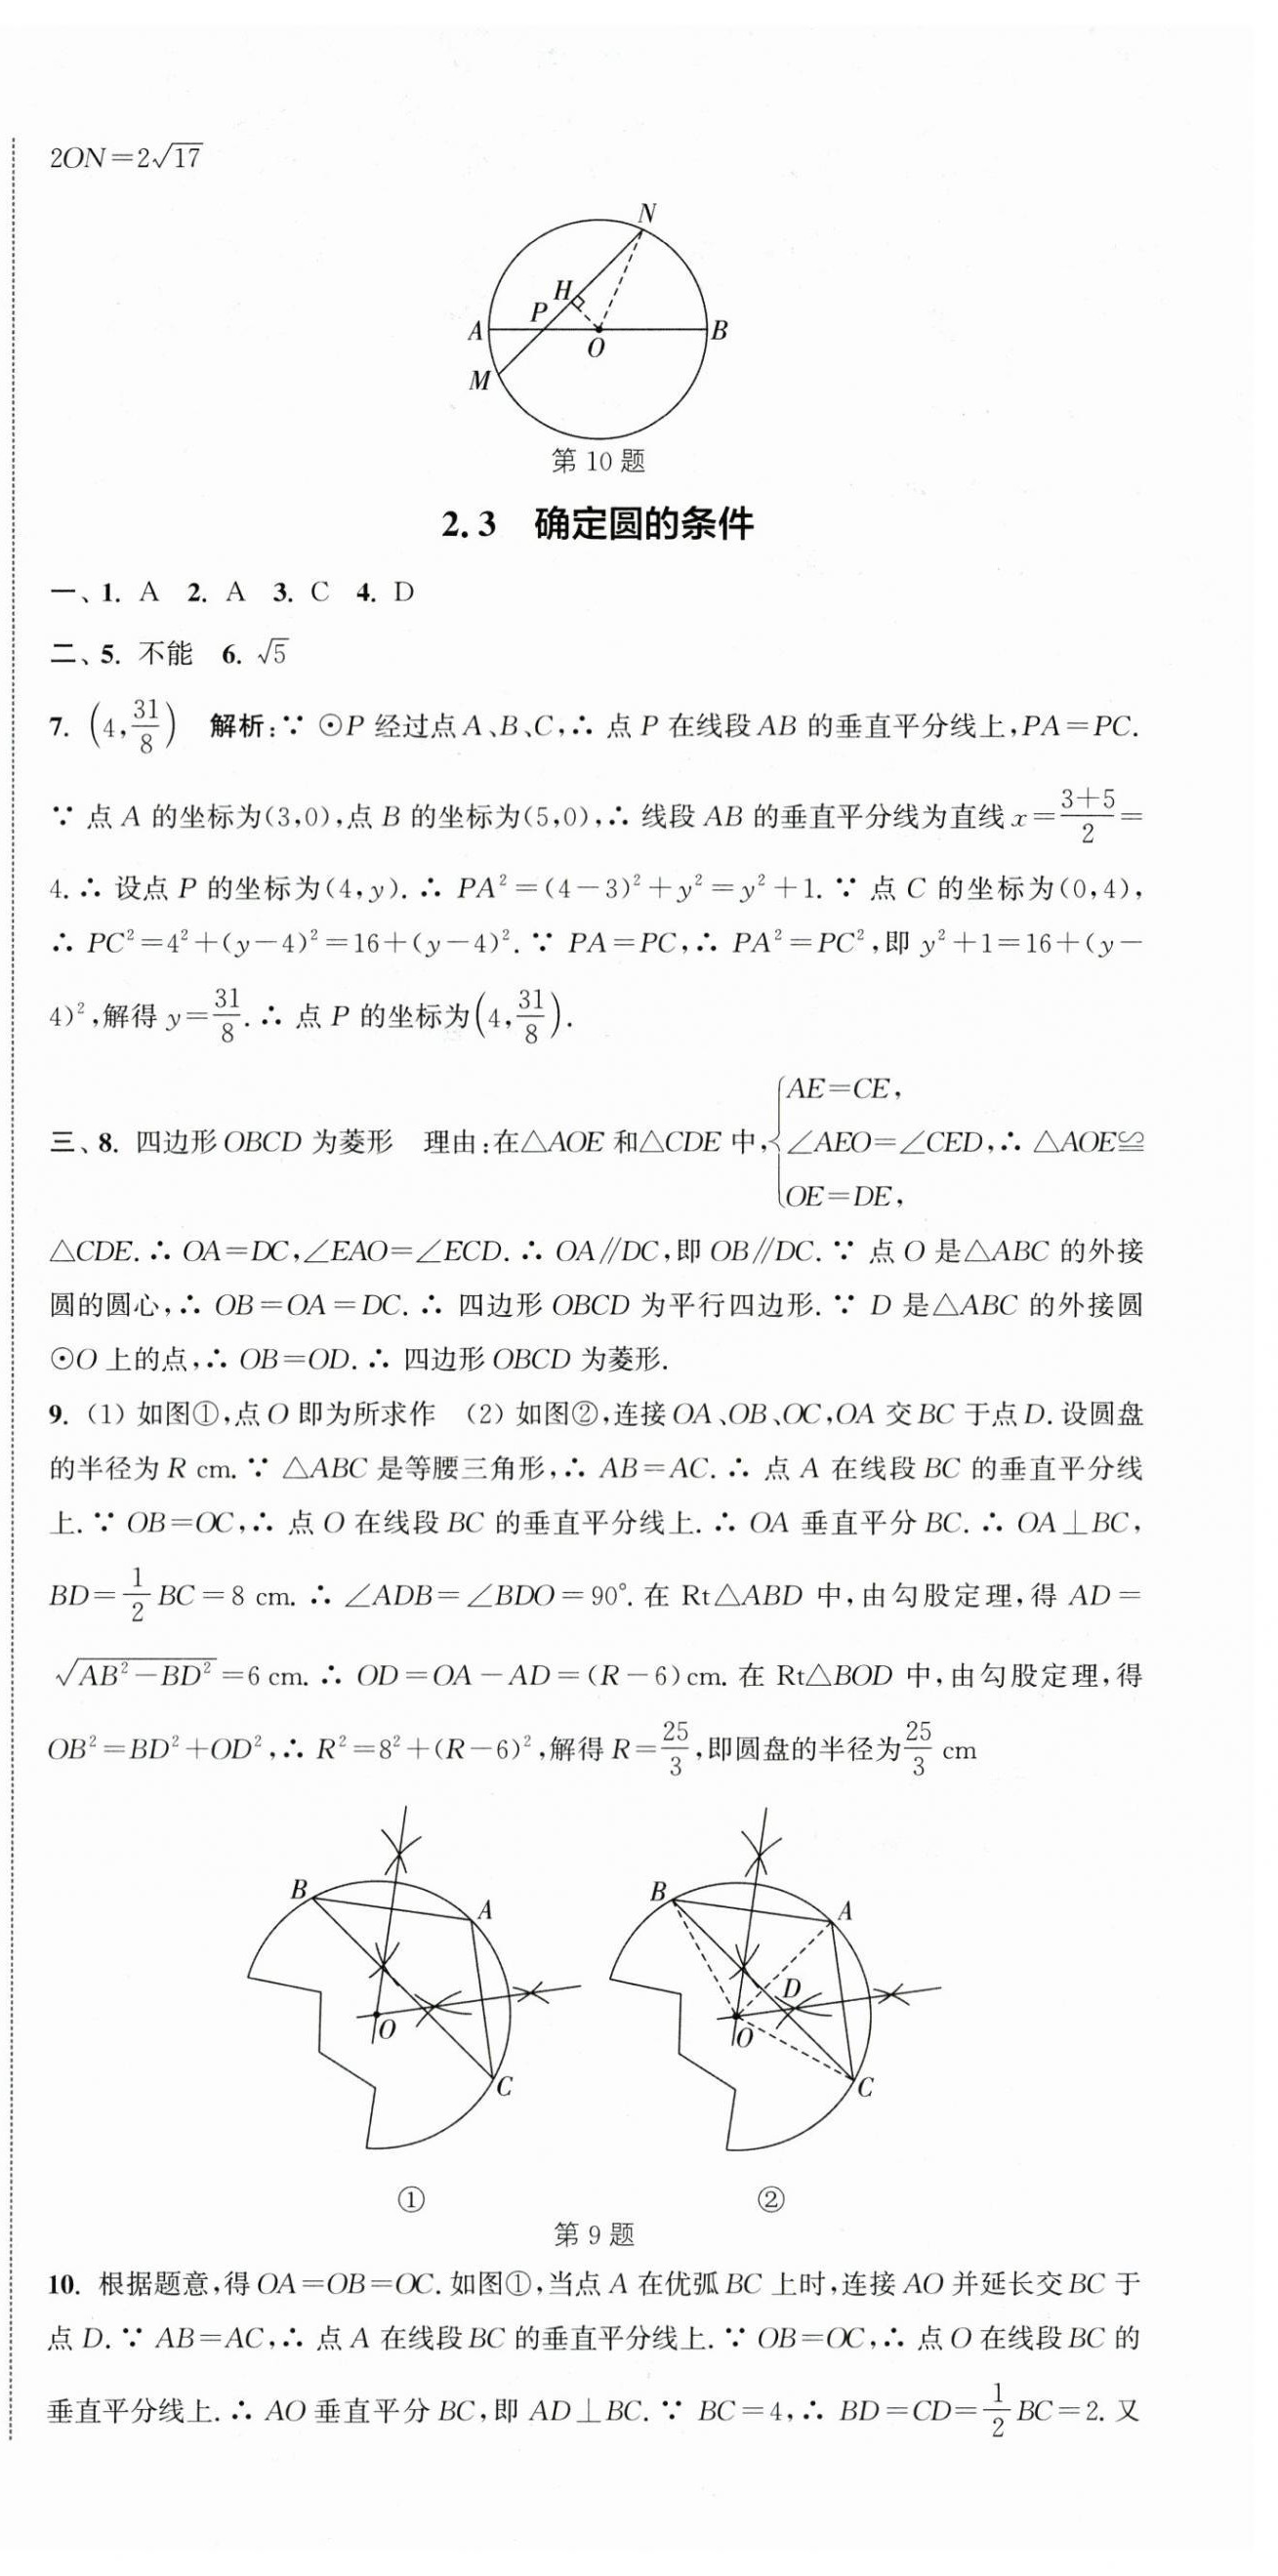 2ON=2√17
N
H
P
A
B
O
M
第 10 题
2.3 确定圆的条件
一、1. A 2. A 3. C 4. D
二、5. 不能 6. √5
7. (4,31/8) 解析:∵ ⊙P 经过点 A、B、C,∴ 点 P 在线段 AB 的垂直平分线上,PA=PC.
∵ 点 A 的坐标为(3,0),点 B 的坐标为(5,0),∴ 线段 AB 的垂直平分线为直线 x=(3+5)/2=
4.∴ 设点 P 的坐标为(4,y).∴ PA²=(4-3)²+y²=y²+1.∵ 点 C 的坐标为(0,4),
∴ PC²=4²+(y-4)²=16+(y-4)².∵ PA=PC,∴ PA²=PC²,即 y²+1=16+(y-
4)²,解得 y=31/8.∴ 点 P 的坐标为(4,31/8).
三、8. 四边形 OBCD 为菱形 理由:在△AOE 和△CDE 中,{AE=CE, ∠AEO=∠CED, OE=DE, ∴ △AOE≌
△CDE.∴ OA=DC,∠EAO=∠ECD.∴ OA∥DC,即 OB∥DC.∵ 点 O 是△ABC 的外接
圆的圆心,∴ OB=OA=DC.∴ 四边形 OBCD 为平行四边形.∵ D 是△ABC 的外接圆
⊙O 上的点,∴ OB=OD.∴ 四边形 OBCD 为菱形.
9. (1) 如图①,点 O 即为所求作 (2) 如图②,连接 OA、OB、OC,OA 交 BC 于点 D.设圆盘
的半径为 R cm.∵ △ABC 是等腰三角形,∴ AB=AC.∴ 点 A 在线段 BC 的垂直平分线
上.∵ OB=OC,∴ 点 O 在线段 BC 的垂直平分线上.∴ OA 垂直平分 BC.∴ OA⊥BC,
BD=1/2 BC=8 cm.∴ ∠ADB=∠BDO=90°.在 Rt△ABD 中,由勾股定理,得 AD=
√(AB²-BD²)=6 cm.∴ OD=OA-AD=(R-6)cm.在 Rt△BOD 中,由勾股定理,得
OB²=BD²+OD²,∴ R²=8²+(R-6)²,解得 R=25/3,即圆盘的半径为 25/3 cm
B
A
O
C
①
B
A
D
O
C
②
第 9 题
10. 根据题意,得 OA=OB=OC.如图①,当点 A 在优弧 BC 上时,连接 AO 并延长交 BC 于
点 D.∵ AB=AC,∴ 点 A 在线段 BC 的垂直平分线上.∵ OB=OC,∴ 点 O 在线段 BC 的
垂直平分线上.∴ AO 垂直平分 BC,即 AD⊥BC.∵ BC=4,∴ BD=CD=1/2 BC=2.又